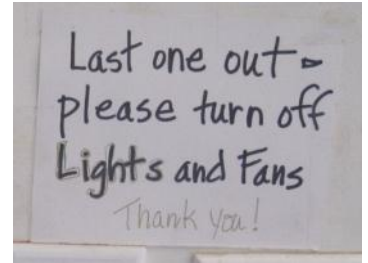 Last one out -
please turn off
Lights and Fans
Thank you!